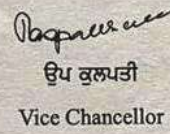 ਉਪ ਕੁਲਪਤੀ
Vice Chancellor